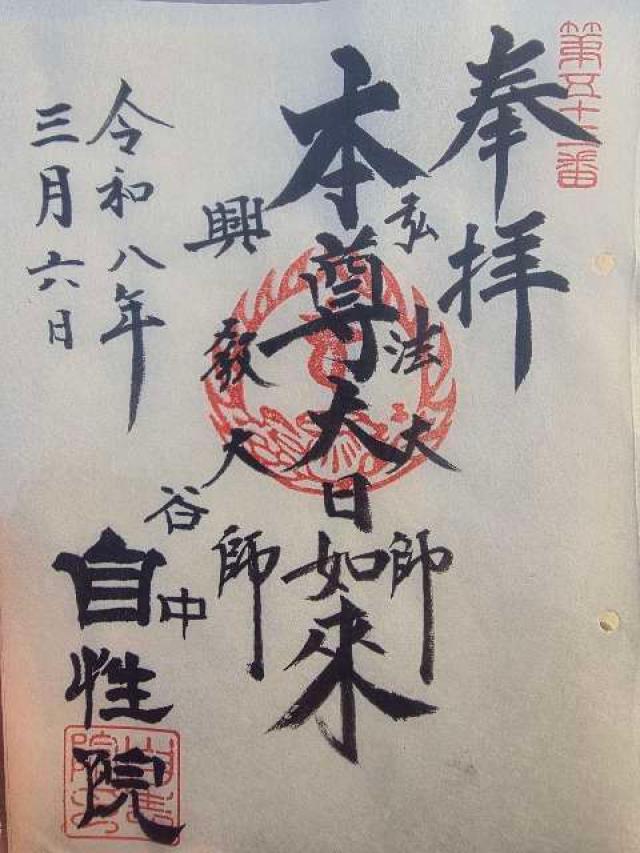 第五十三番
奉拝
弘法大師
本尊大日如來
興教大師
令和八年
三月六日
谷中
自性院